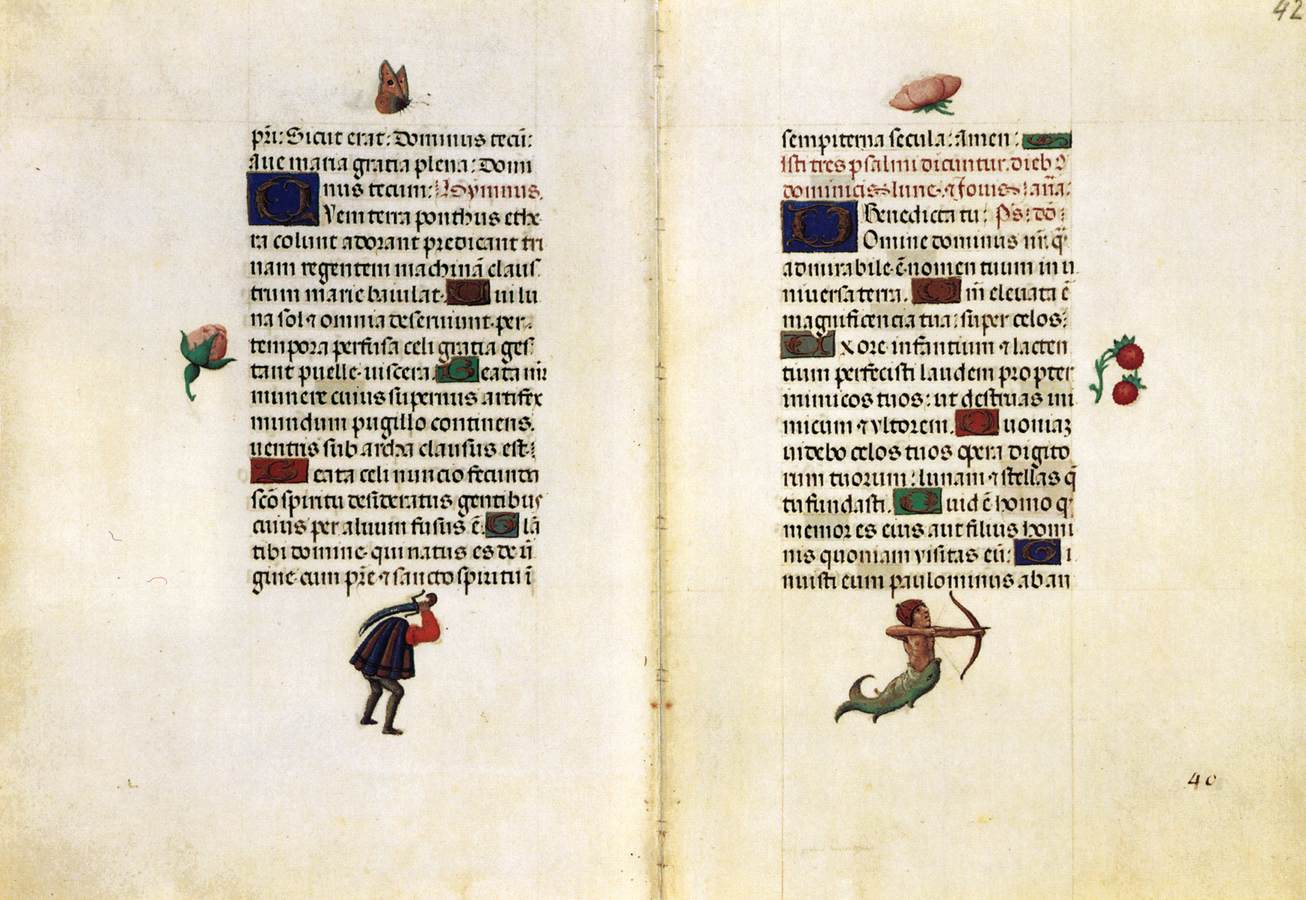 pri: Sicut erat: Dominus tecū:
Aue maria gratia plena: Domi
nus tecum: Hymnus.
Quem terra ponthus ethe
ra colunt adorant predicant tri
nam regentem machinā claus
trum marie baiulat. Cui lu
na sol ⁊ omnia deseruiunt per
tempora perfusa celi gratia ges
tant puelle viscera. Beata mr̄
munere cuius supernus artifex
mundum pugillo continens.
uentris sub archa clausus est:
Beata celi nuncio fecunda
scō spiritu desideratus gentibus
cuius per aluum fusus ē. Glā
tibi domine qui natus es de ū
gine cum prē ⁊ sancto spiritu ī
42
sempiterna secula: Amen:
Isti tres psalmi dicuntur dieb9
dominicis lune ⁊ Jouis: añā:
Benedicta tu: Ps: dō:
Domine dominus nr̄: q̄
admirabile ē nomen tuum in u
niuersa terra. Qm̄ eleuata ē
magnificencia tua: super celos:
Ex ore infantium ⁊ lacten
tium perfecisti laudem propter
inimicos tuos: ut destruas ini
micum ⁊ vltorem. Quoniaʒ
uidebo celos tuos opera digito
rum tuorum: lunam ⁊ stellas q̄
tu fundasti. Quid ē homo q
memor es eius aut filius homi
nis quoniam visitas eū: i
nuisti eum paulominus ab an
40